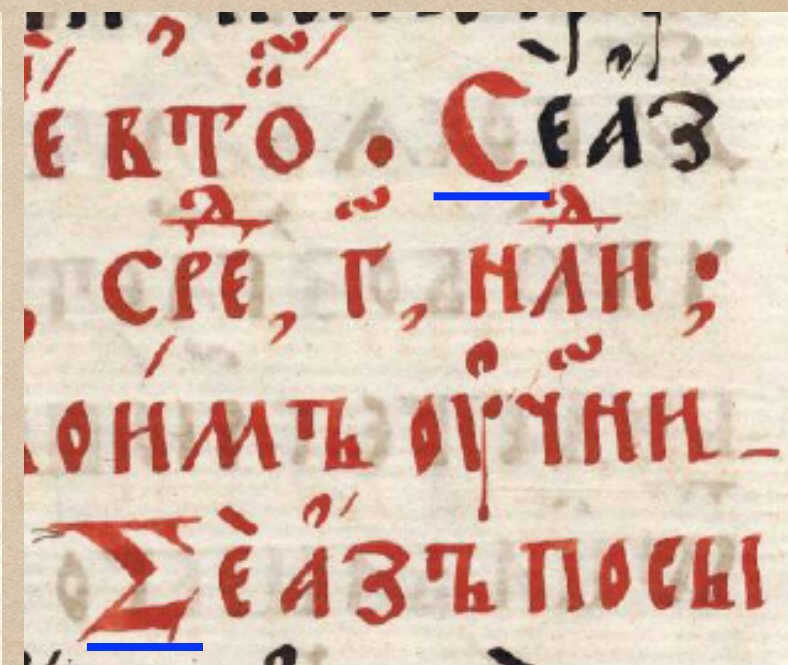 Е ВТО҃ . СЕАЗ
, СРЕⷣ, Г҃, НЛⷣН ;
ОИМЪ ОУ҃ЧНИ_
ΣЕАЗЪПОСЫ